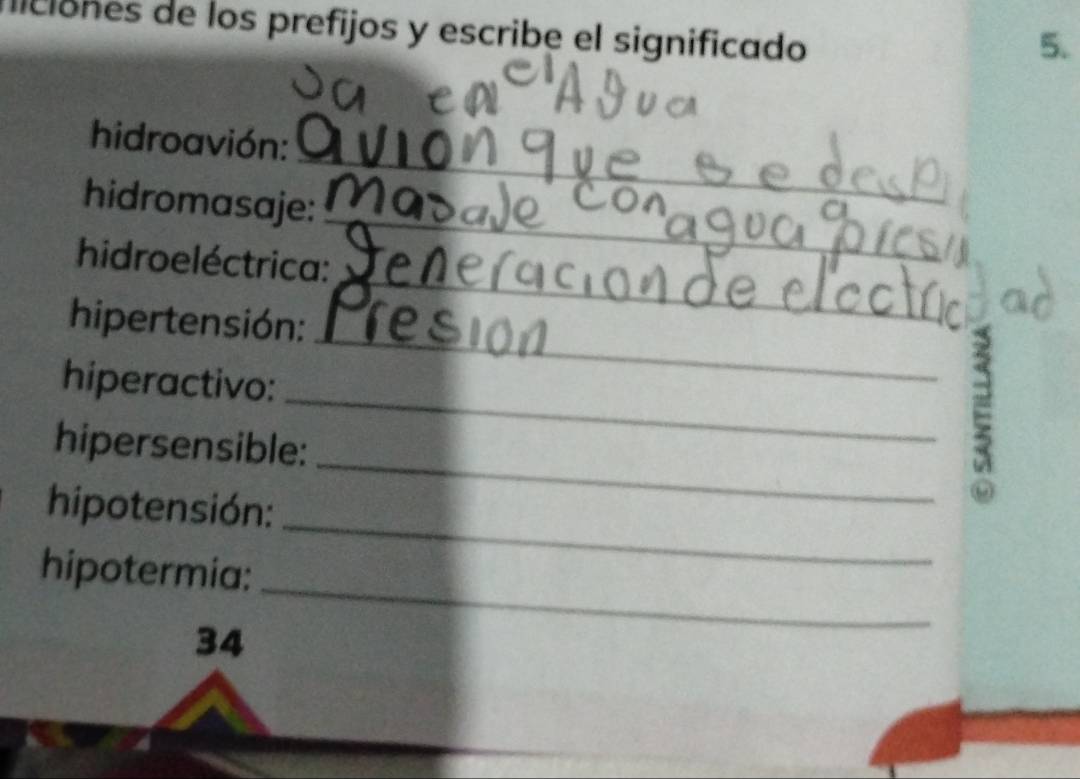 niciones de los prefijos y escribe el significado
5.
sa en el Agua
hidroavión: avion que se desp
hidromasaje: masaje con agua a presi
hidroeléctrica: generacion de electricidad
hipertensión: Presion
hiperactivo:
hipersensible:
hipotensión:
hipotermia:
34
© SANTILLANA